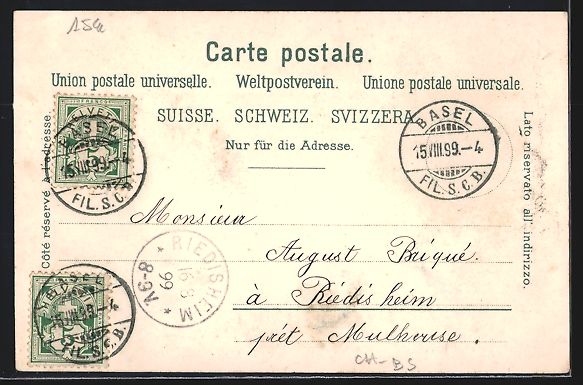 15a
Carte postale.
Union postale universelle. Weltpostverein. Unione postale universale.
SUISSE. SCHWEIZ. SVIZZERA.
Nur für die Adresse.
Côté réservé à l'adresse.
Lato riservato all' indirizzo.
BASEL
15.VIII.99.–4
FIL.S.C.B.
BASEL
15.VIII.99.–4
FIL.S.C.B.
BASEL
15.VIII.99.–4
FIL.S.C.B.
RIEDISHEIM
16 8
99
Monsieur
August Briqué.
à Riedisheim
prèt Mulhouse.
CH-BS